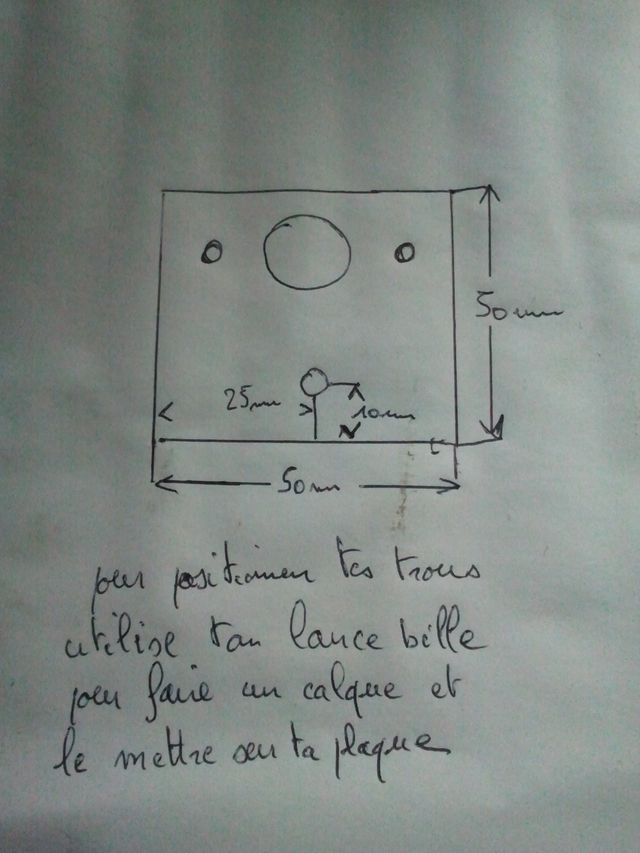 50mm
25mm
10mm
50mm
pour positionner tes trous
utilise ton lance bille
pour faire un calque et
le mettre sur ta plaque